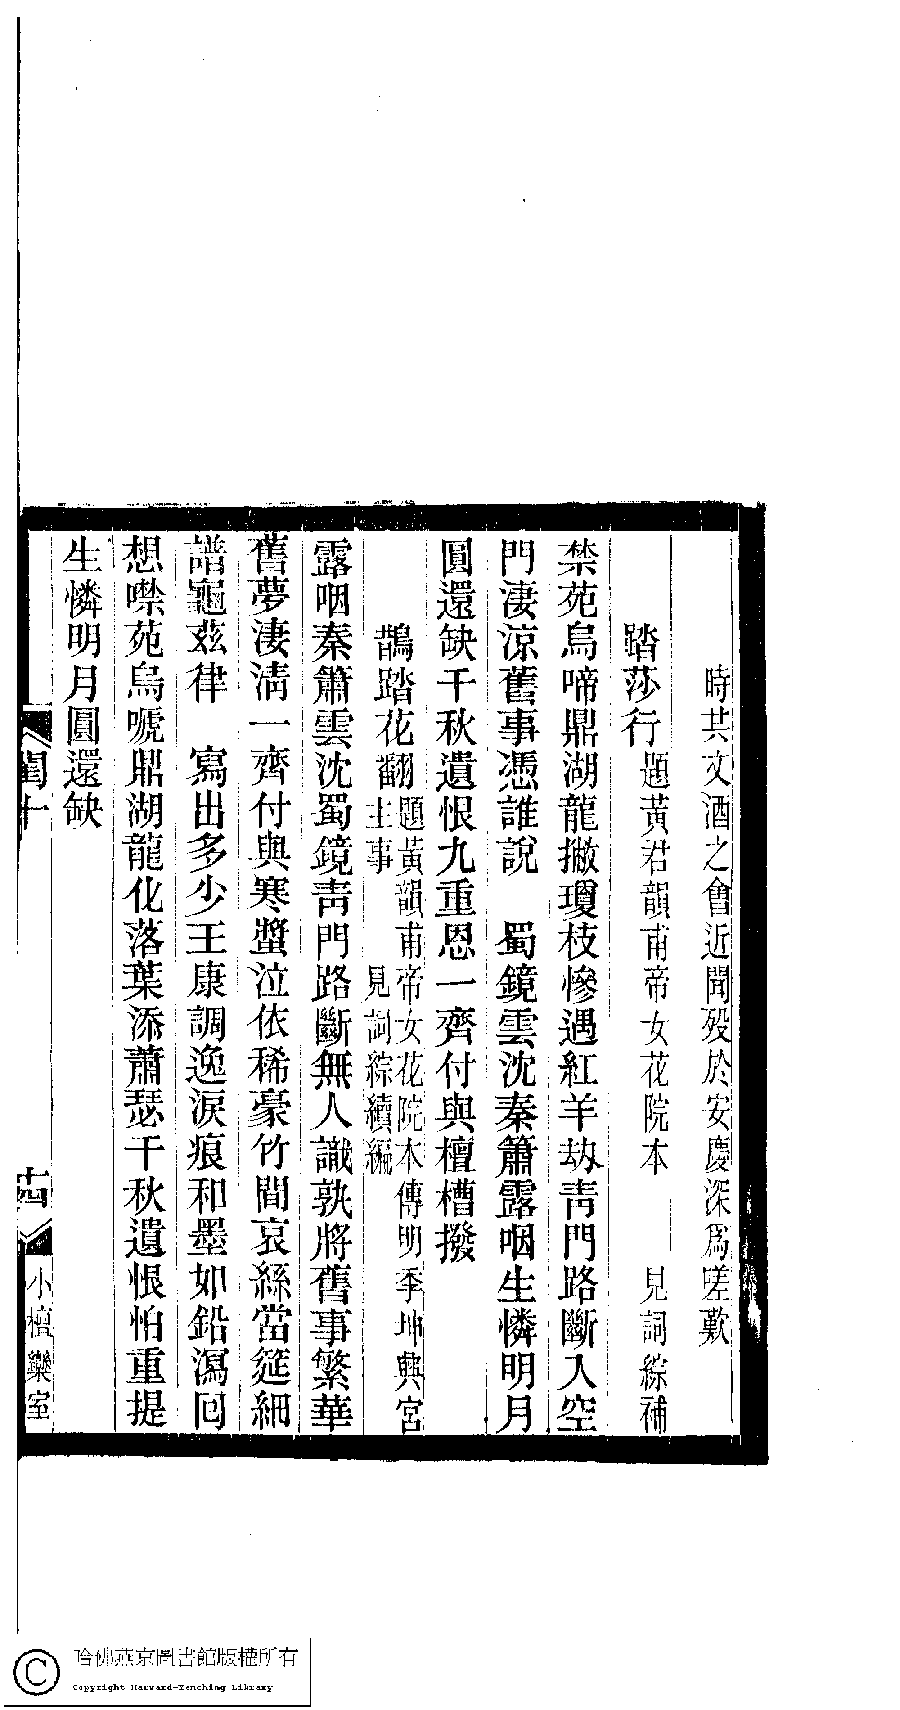 時共文酒之會近聞歿於安慶深爲嗟歎
踏莎行題黃君韻甫帝女花院本 見詞綜補
禁苑烏啼鼎湖龍撇瓊枝慘遇紅羊劫靑門路斷人空
門淒涼舊事憑誰說 蜀鏡雲沈秦簫露咽生憐明月
圓還缺千秋遺恨九重恩一齊付與檀槽撥
鵲踏花翻題黃韻甫帝女花院本傳明季坤興宮
主事 見詞綜續編
露咽秦簫雲沈蜀鏡靑門路斷無人識孰將舊事繁華
舊夢淒淸一齊付與寒螿泣依稀豪竹間哀絲當筵細
譜龜茲律 寫出多少王康調逸淚痕和墨如鉛瀉回
想噤苑烏嗁鼎湖龍化落葉添蕭瑟千秋遺恨怕重提
生憐明月圓還缺
閨十
十四
小檀欒室
哈佛燕京圖書館版權所有
Copyright Harvard-Yenching Library